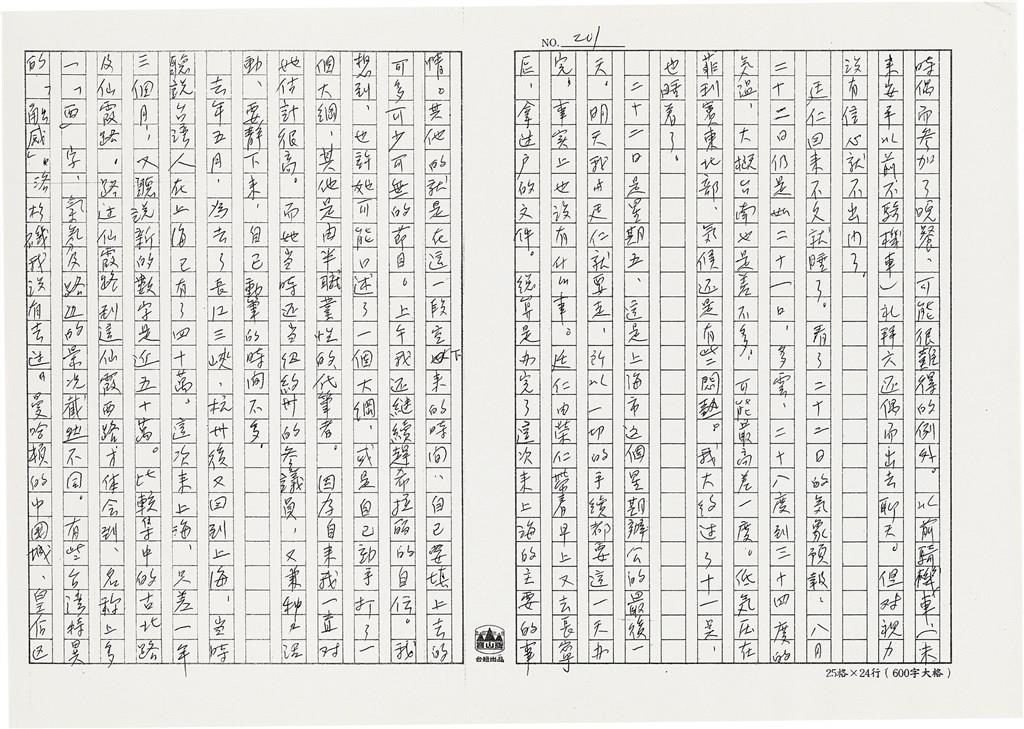 NO. 201
時偶而參加了晚餐、可能很難得的例外。以前騎機車、(未
來安平以前不騎機車)禮拜六还偶而出去聊天。但对視力
沒有信心就不出门了。
廷仁回来不久就睡了。看了二十二日的気象預報、八月
二十二日仍是如二十一日、多雲、二十八度到三十四度的
気温。大概台南也是差不多、可能最高差一度。低気圧在
菲到裏東北部、気候还是有些悶熱。我大約过了十一点、
也睡着了。
二十二日是星期五、這是上海市这個星期辦公的最後一
天。明天我与廷仁就要走、所以一切的手續都要這一天办
完。事実上也沒有什么事。廷仁由榮仁帶着早上又去長寧
区、拿进户的文件。總算是办完了這次来上海的主要的事
情。其他的就是在這一段空下来的時间、自己要填上去的
可多可少可無的節目。上午我还継續趕希拉蕊的自传。我
想到、也許她可能口述了一個大綱、或是自己動手打了一
個大綱、其他是由半職業性的代筆者。因为自来我一直对
她估計很高。而她当時还当纽約州的参議員、又兼种々活
動、要静下来、自己動筆的時间不多。
去年五月、為去了長江三峡、杭州後又回到上海、当時
聽説台湾人在上海已有了四十萬。這次来上海、只差一年
三個月、又聽説新的數字是近五十萬。比較集中的古北路
及仙霞路。路过仙霞路到這仙霞西路方体会到、名称上多
一「西」字、氣氛及路边的景況截然不同。有些台湾特異
的「触感」。洛杉磯我没有去过。曼哈頓的中国城、皇后区
高山牌
台紐出品
25格×24行(600字大格)